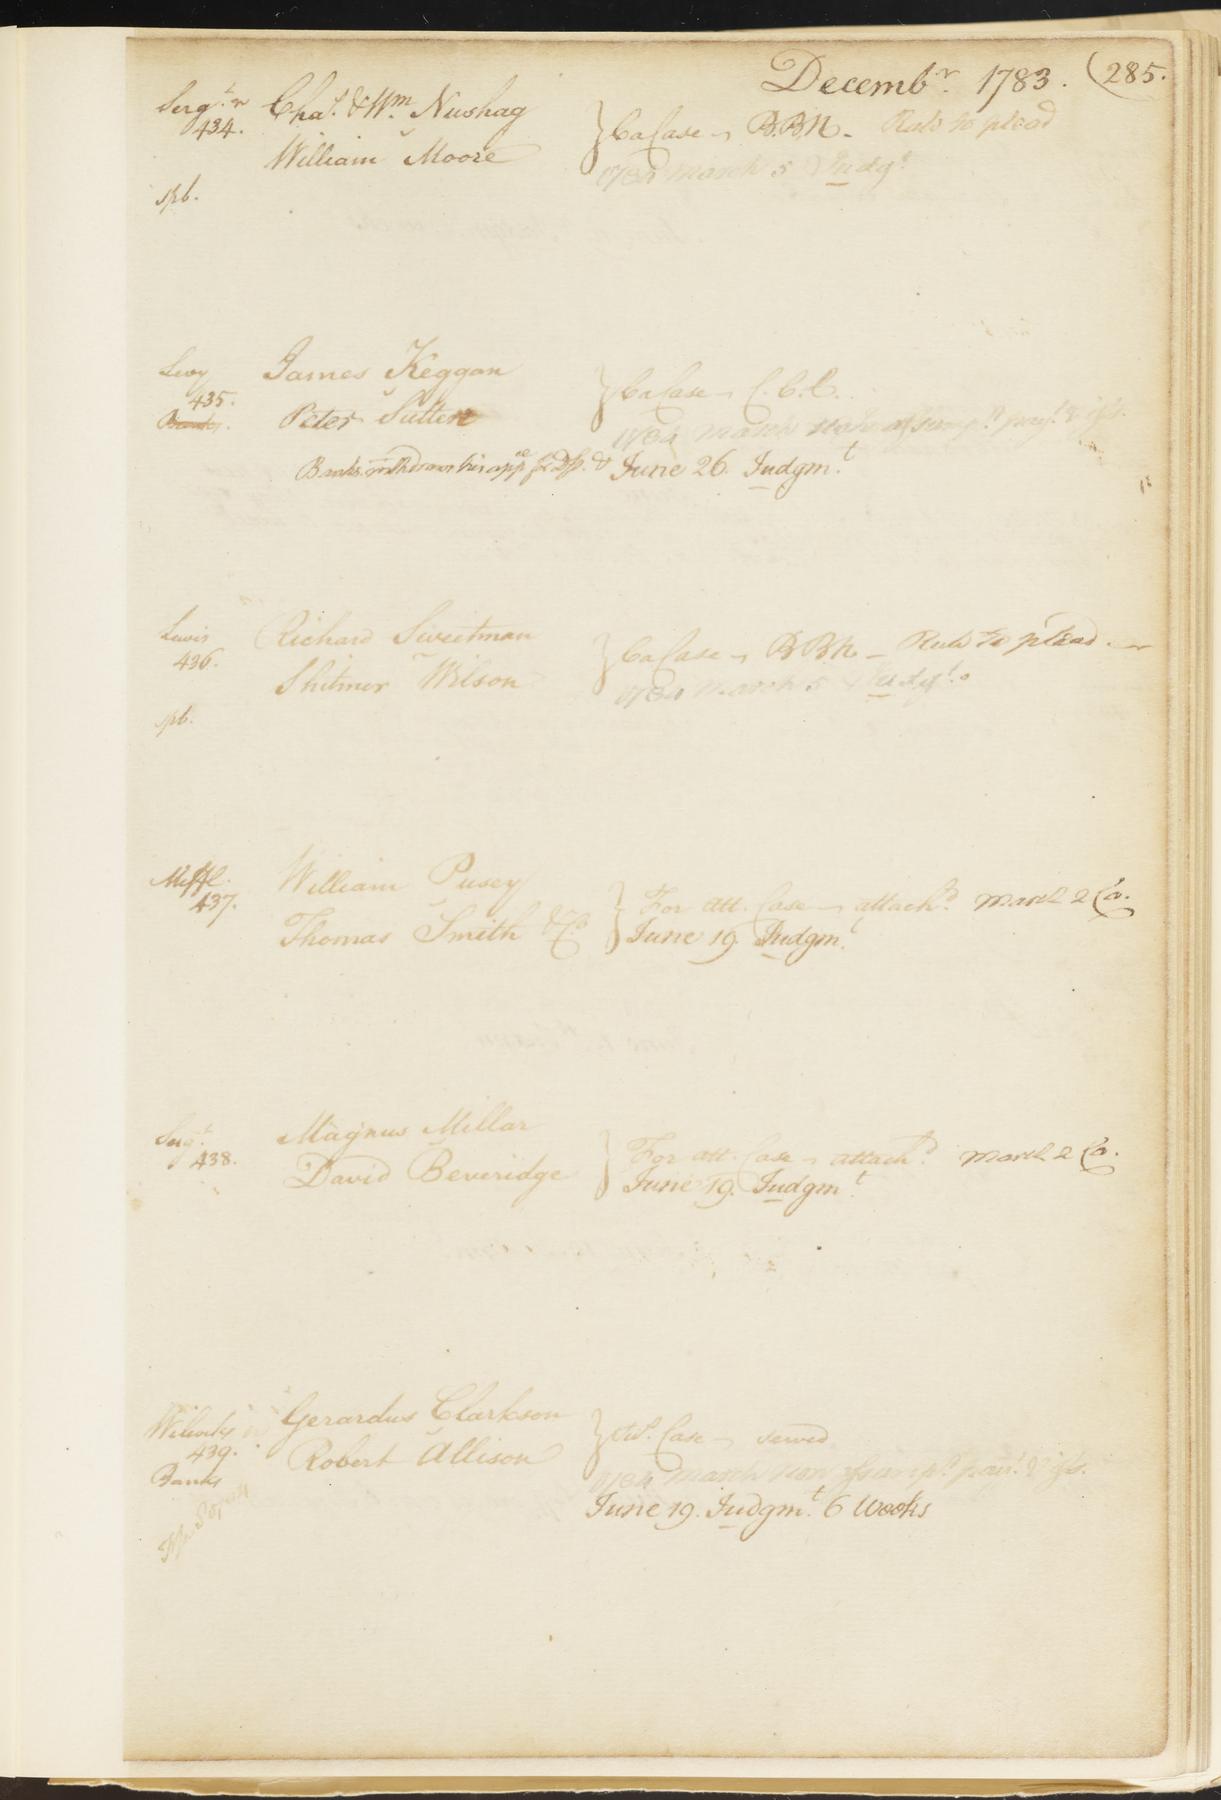 Decemb.r 1783. (285.
Serg.t
Cha.s & Wm. Nushag
434.
William Moore
Ca Case B.B.N. Rule to plead
1784 March 5 Judg.t
spb.
Levy
James Keggan
435.
Peter Sutter
Banks.
Ca Case C.C.C.
1784 March
Banks withdraws his app.ce for Df. & June 26. Judgm.t
Lewis
Richard Sweetman
436.
Wilson
Ca Case BBN Rule to plead
1784 March 5 Judg.t
spb.
Miffl.
William Pusey
437.
Thomas Smith & Co
For att. Case attach.d March 2 Co.
June 19 Judgm.t
Serg.t
Magnus Millar
438.
David Beveridge
For att. Case attach.d March 2 Co.
June 19. Judgm.t
Willcocks
Gerardus Clarkson
439.
Robert Allison
Banks
Case served
1784 March non assump.t paym.t & iss.
June 19. Judgm.t 6 Weeks